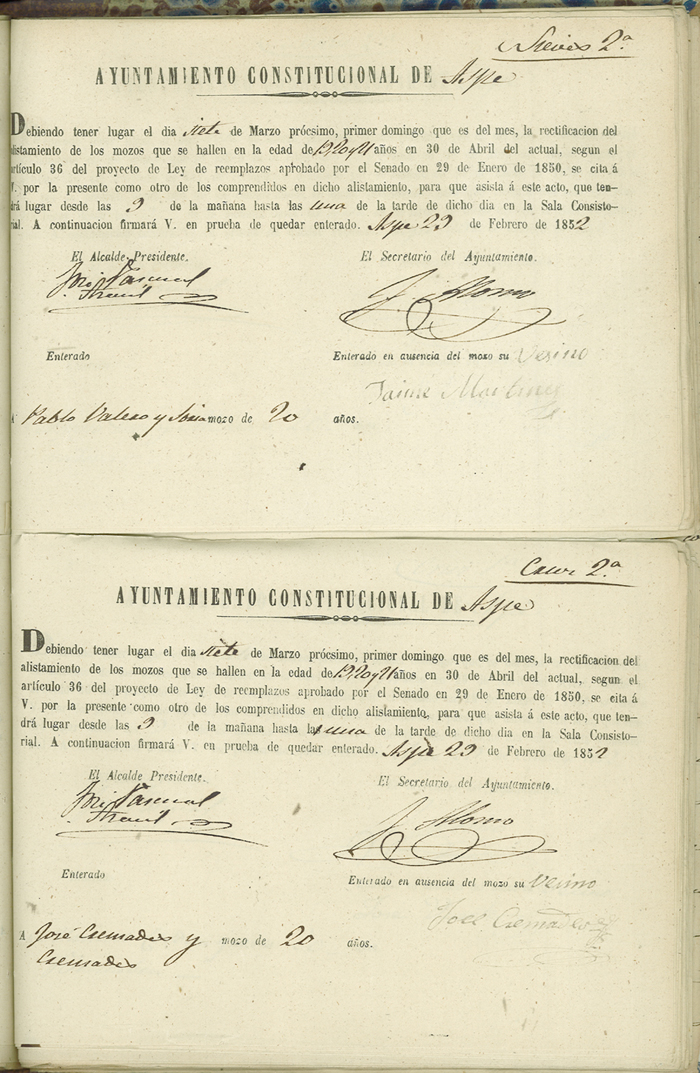 Nieves 2.ª
AYUNTAMIENTO CONSTITUCIONAL DE Aspe
Debiendo tener lugar el dia siete de Marzo prócsimo, primer domingo que es del mes, la rectificacion del
alistamiento de los mozos que se hallen en la edad de 19, 20 y 21 años en 30 de Abril del actual, segun el
artículo 36 del proyecto de Ley de reemplazos aprobado por el Senado en 29 de Enero de 1850, se cita á
V. por la presente como otro de los comprendidos en dicho alistamiento, para que asista á este acto, que ten-
drá lugar desde las 9 de la mañana hasta las una de la tarde de dicho dia en la Sala Consisto-
rial. A continuacion firmará V. en prueba de quedar enterado. Aspe 29 de Febrero de 1852
El Alcalde Presidente. El Secretario del Ayuntamiento.
José Pascual J. Alonso
Enterado Enterado en ausencia del mozo su Vesino
Jaime Martinez
A Pablo Valero y Soria mozo de 20 años.
Cruz 2.ª
AYUNTAMIENTO CONSTITUCIONAL DE Aspe
Debiendo tener lugar el dia siete de Marzo prócsimo, primer domingo que es del mes, la rectificacion del
alistamiento de los mozos que se hallen en la edad de 19, 20 y 21 años en 30 de Abril del actual, segun el
artículo 36 del proyecto de Ley de reemplazos aprobado por el Senado en 29 de Enero de 1850, se cita á
V. por la presente como otro de los comprendidos en dicho alistamiento, para que asista á este acto, que ten-
drá lugar desde las 9 de la mañana hasta las una de la tarde de dicho dia en la Sala Consisto-
rial. A continuacion firmará V. en prueba de quedar enterado. Aspe 29 de Febrero de 1852
El Alcalde Presidente. El Secretario del Ayuntamiento.
José Pascual J. Alonso
Enterado Enterado en ausencia del mozo su Vecino
Jose Cremades
A José Cremades y mozo de 20 años.
Cremades